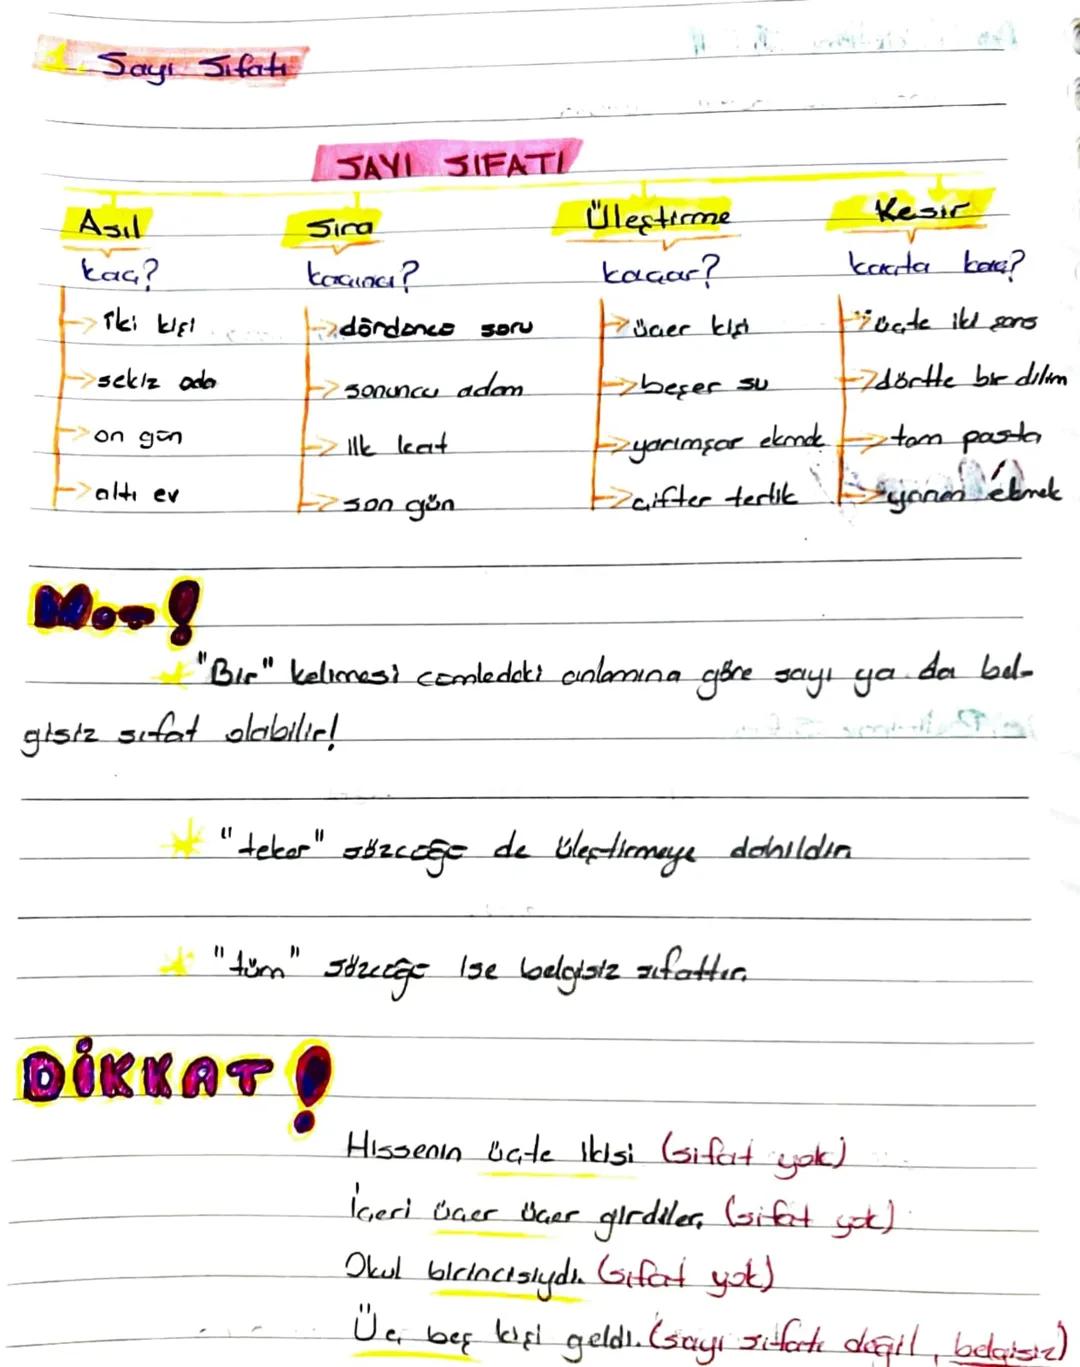 Sayı Sıfatı
SAYI SIFATI
Asıl Sıra Üleştirme Kesir
kaç? kaçıncı? kaçar? kaçta kaç?
iki kişi dördüncü soru üçer kişi üçte iki şans
sekiz oda sonuncu adam beşer su dörtte bir dilim
on gün ilk kat yarımşar ekmek tam pasta
altı ev son gün çifter terlik yarım ekmek
Not!
"Bir" kelimesi cümledeki anlamına göre sayı ya da bel-
gisiz sıfat olabilir!
"teker" sözcüğü de üleştirmeye dahildir.
"tüm" sözcüğü ise belgisiz sıfattır.
DİKKAT!
Hissenin üçte ikisi (sıfat yok)
İçeri üçer üçer girdiler. (sıfat yok)
Okul birincisiydi. (sıfat yok)
Üç, beş kişi geldi. (sayı sıfatı değil, belgisiz)